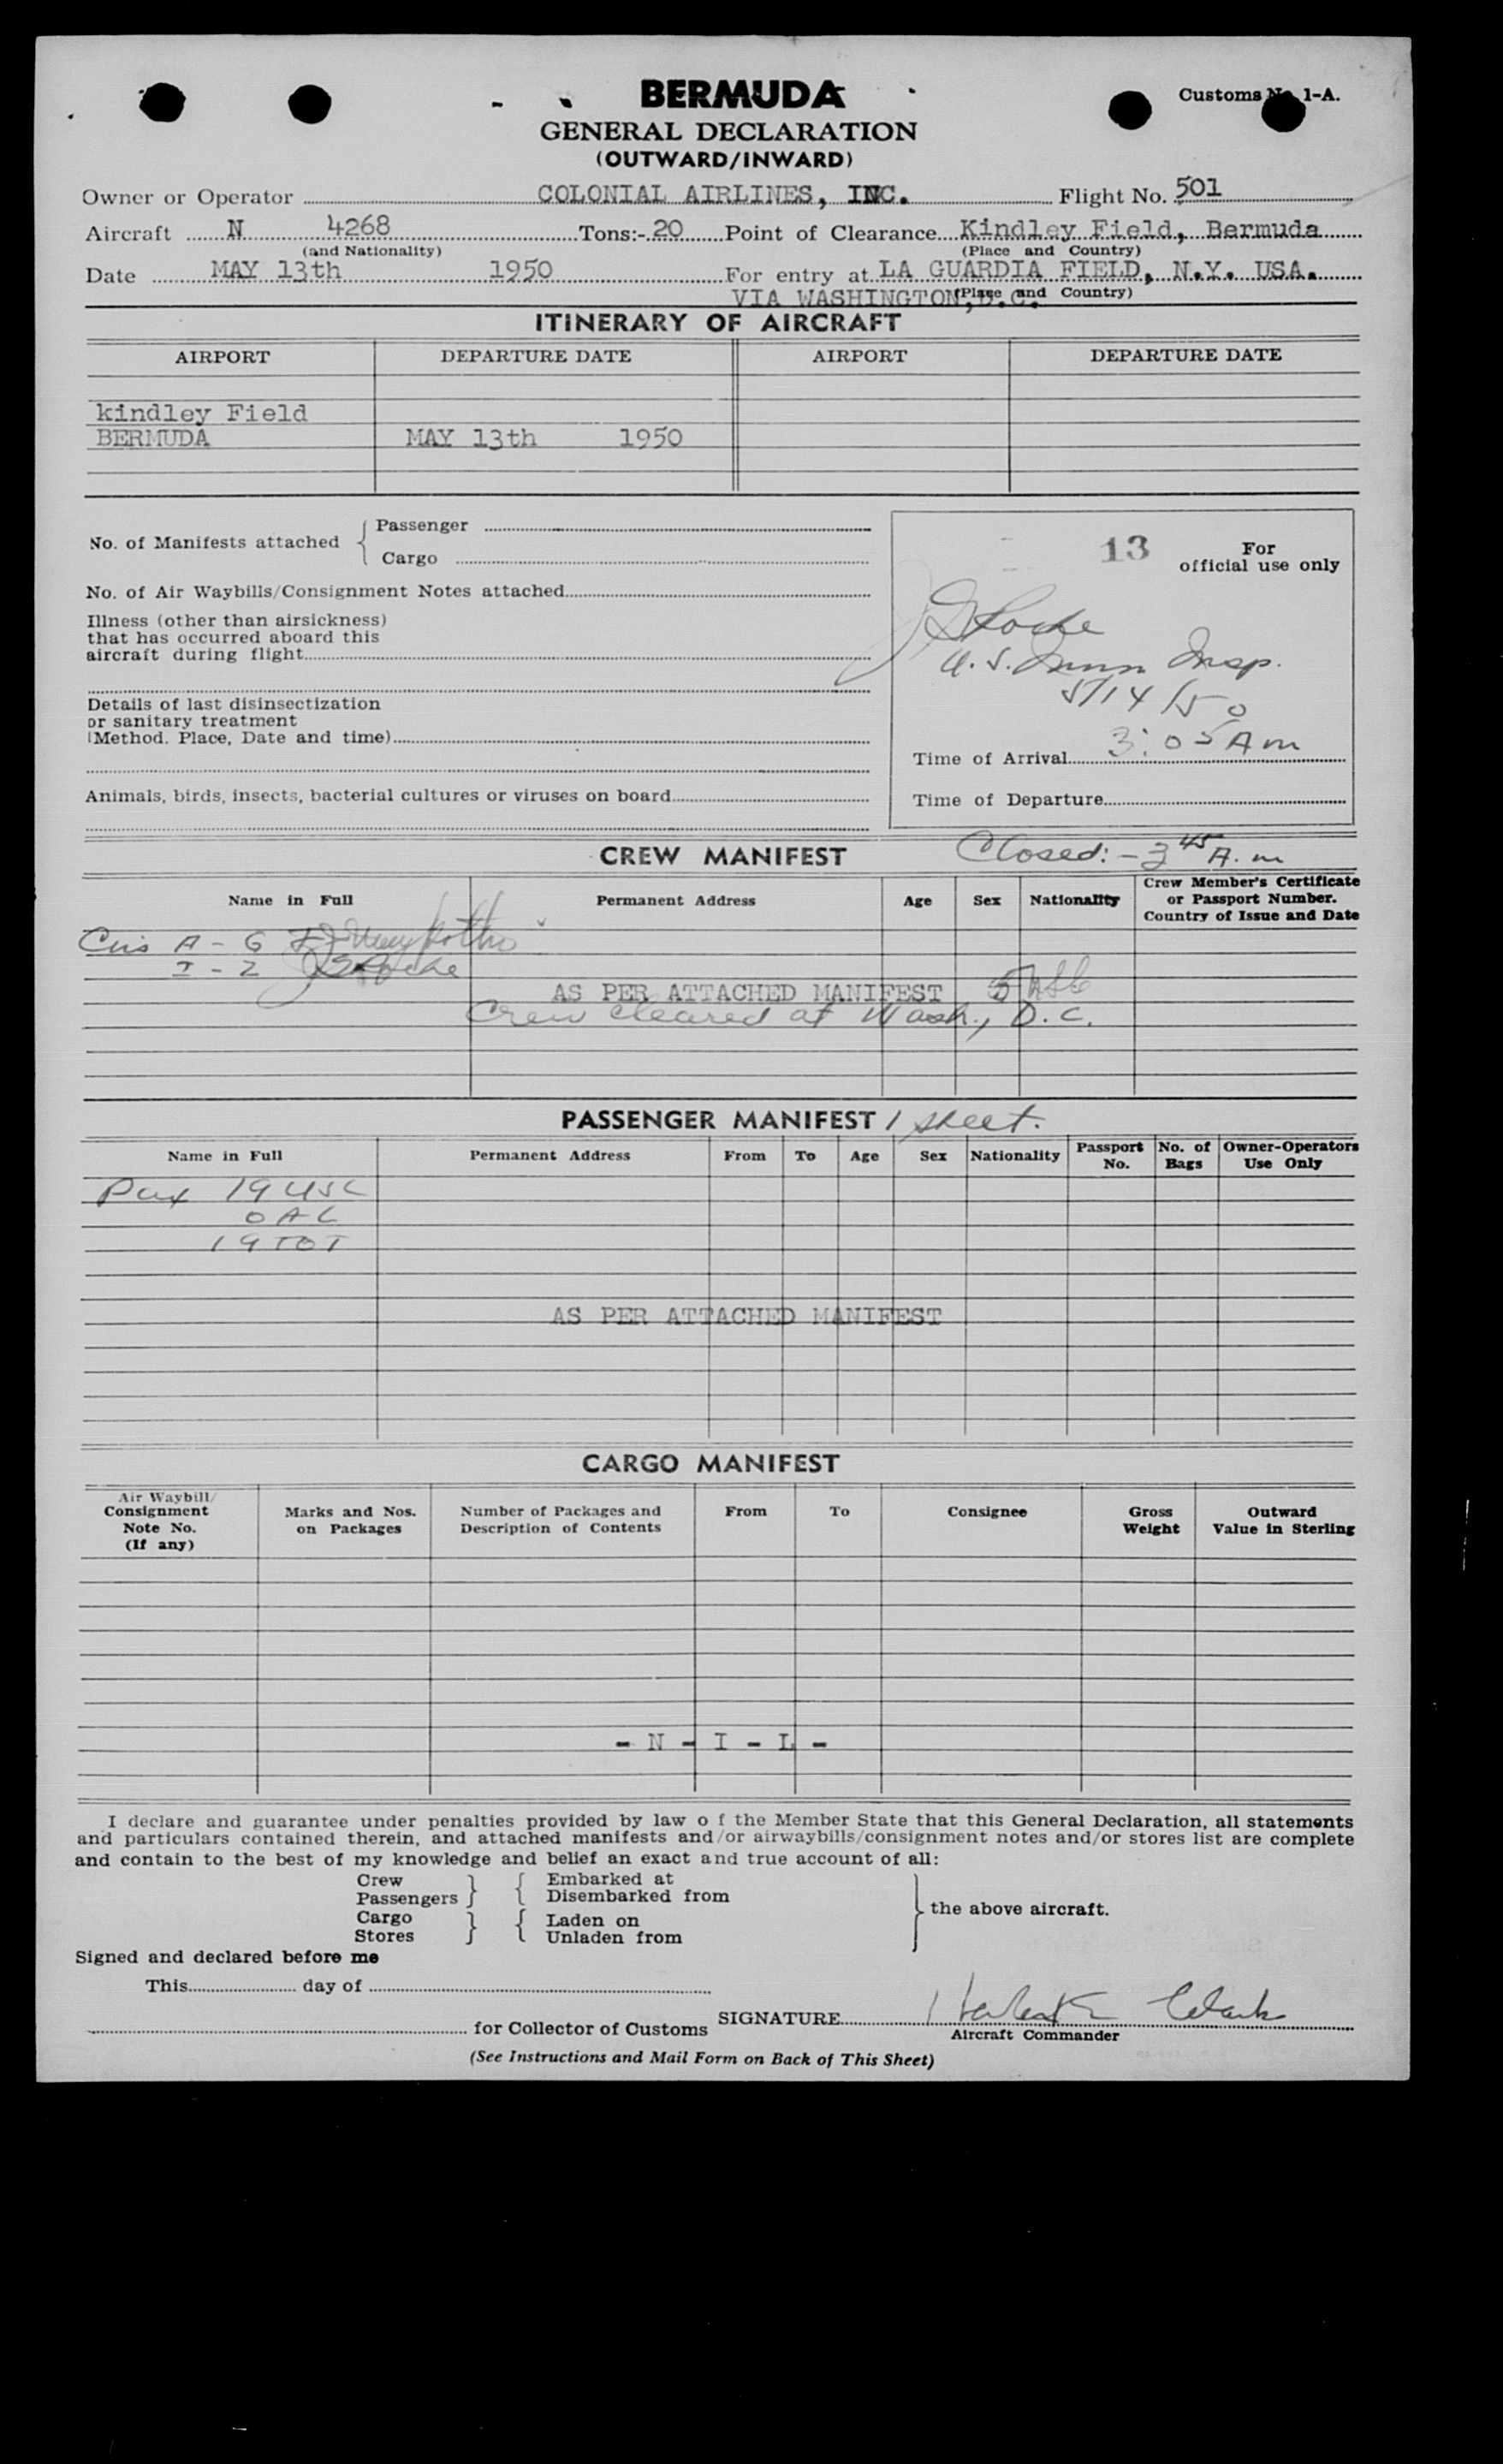 BERMUDA
Customs No. 1-A.
GENERAL DECLARATION
(OUTWARD/INWARD)
Owner or Operator COLONIAL AIRLINES, INC. Flight No. 501
Aircraft N 4268 Tons:- 20 Point of Clearance Kindley Field, Bermuda
(and Nationality) (Place and Country)
Date MAY 13th 1950 For entry at LA GUARDIA FIELD, N.Y. USA.
VIA WASHINGTON, D.C. (Place and Country)
ITINERARY OF AIRCRAFT
AIRPORT DEPARTURE DATE AIRPORT DEPARTURE DATE
kindley Field
BERMUDA MAY 13th 1950
No. of Manifests attached { Passenger
Cargo
No. of Air Waybills/Consignment Notes attached
Illness (other than airsickness)
that has occurred aboard this
aircraft during flight
Details of last disinsectization
or sanitary treatment
(Method. Place, Date and time)
Animals, birds, insects, bacterial cultures or viruses on board
13 For
official use only
U.S. Imm Insp.
5/14/50
Time of Arrival 3:05 Am
Time of Departure
CREW MANIFEST Closed:- 3 45 A.m
Name in Full Permanent Address Age Sex Nationality Crew Member's Certificate
or Passport Number.
Country of Issue and Date
A - G
I - Z
AS PER ATTACHED MANIFEST 5
Crew cleared at Wash., D.C.
PASSENGER MANIFEST 1 sheet.
Name in Full Permanent Address From To Age Sex Nationality Passport No. No. of Bags Owner-Operators Use Only
Pax 19 USC
0 AL
19 TOT
AS PER ATTACHED MANIFEST
CARGO MANIFEST
Air Waybill/
Consignment
Note No.
(If any)
Marks and Nos.
on Packages
Number of Packages and
Description of Contents
From To Consignee Gross
Weight
Outward
Value in Sterling
- N - I - L -
I declare and guarantee under penalties provided by law o f the Member State that this General Declaration, all statements
and particulars contained therein, and attached manifests and/or airwaybills/consignment notes and/or stores list are complete
and contain to the best of my knowledge and belief an exact and true account of all:
Crew } { Embarked at
Passengers Disembarked from
Cargo } { Laden on
Stores Unladen from
} the above aircraft.
Signed and declared before me
This day of
for Collector of Customs SIGNATURE Clark
Aircraft Commander
(See Instructions and Mail Form on Back of This Sheet)